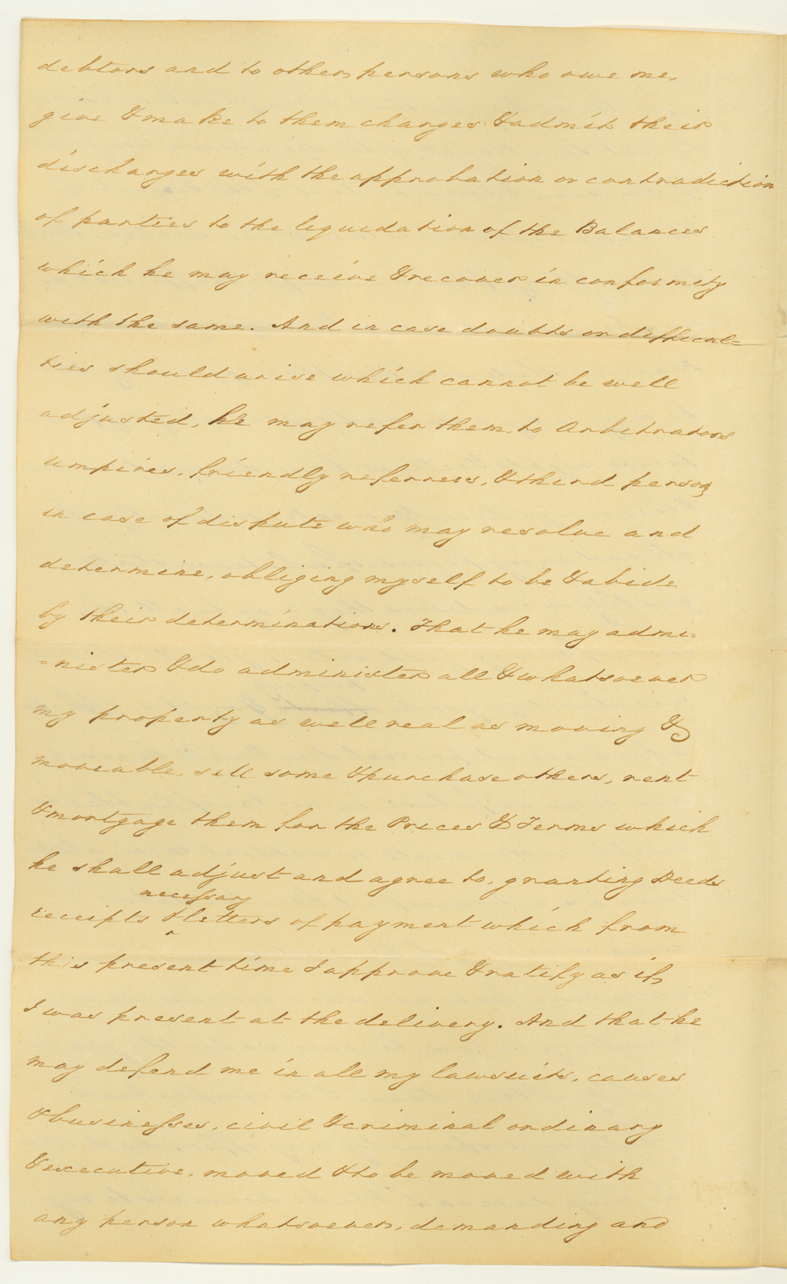 debtors and to other persons who owe me,
give & make to them charges & admit their
discharges with the approbation or contradiction
of parties to the liquidation of the Balances
which he may receive & recover in conformity
with the same. And in case doubts or difficul=
ties should arise which cannot be well
adjusted, he may refer them to Arbitrators
umpires, friendly referrees, & third person
in case of dispute who may resolve and
determine, obliging myself to be & abide
by their determinations. That he may admi=
=nister & do administer all & whatsoever
my property as well real as moving &
moveable, sell some & purchase others, rent
& mortgage them for the Prices & Terms which
he shall adjust and agree to, granting Deeds
necessary
receipts & letters of payment which from
this present time I approve & ratify as if
I was present at the delivery. And that he
may defend me in all my lawsuits, causes
& businesses, civil & criminal ordinary
& executive, moved & to be moved with
any person whatsoever, demanding and